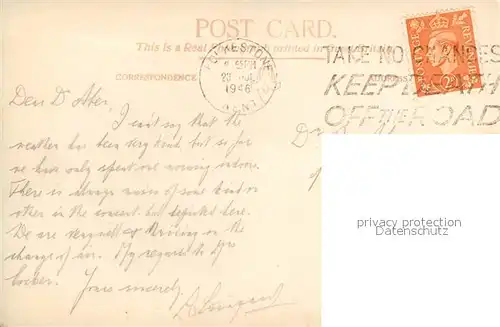 POST CARD.
This is a Real Photograph printed in
CORRESPONDENCE
ADDRESS
FOLKESTONE
23 JUL
1946
KENT
TAKE NO CHANCES
KEEP DEATH
OFF THE ROAD
POSTAGE REVENUE
Dear Dr
I can't say that the
weather has been very kind but so far
we have only spent one morning indoors.
There is always music of some kind or
other in the concert hall depicted here.
We are very well & thriving on the
change of air. My regards to Mrs
Yours sincerely
Dr
privacy protection
Datenschutz